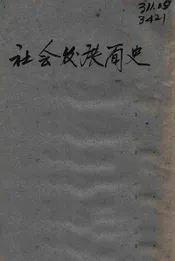 311.08
3421
社会发展简史